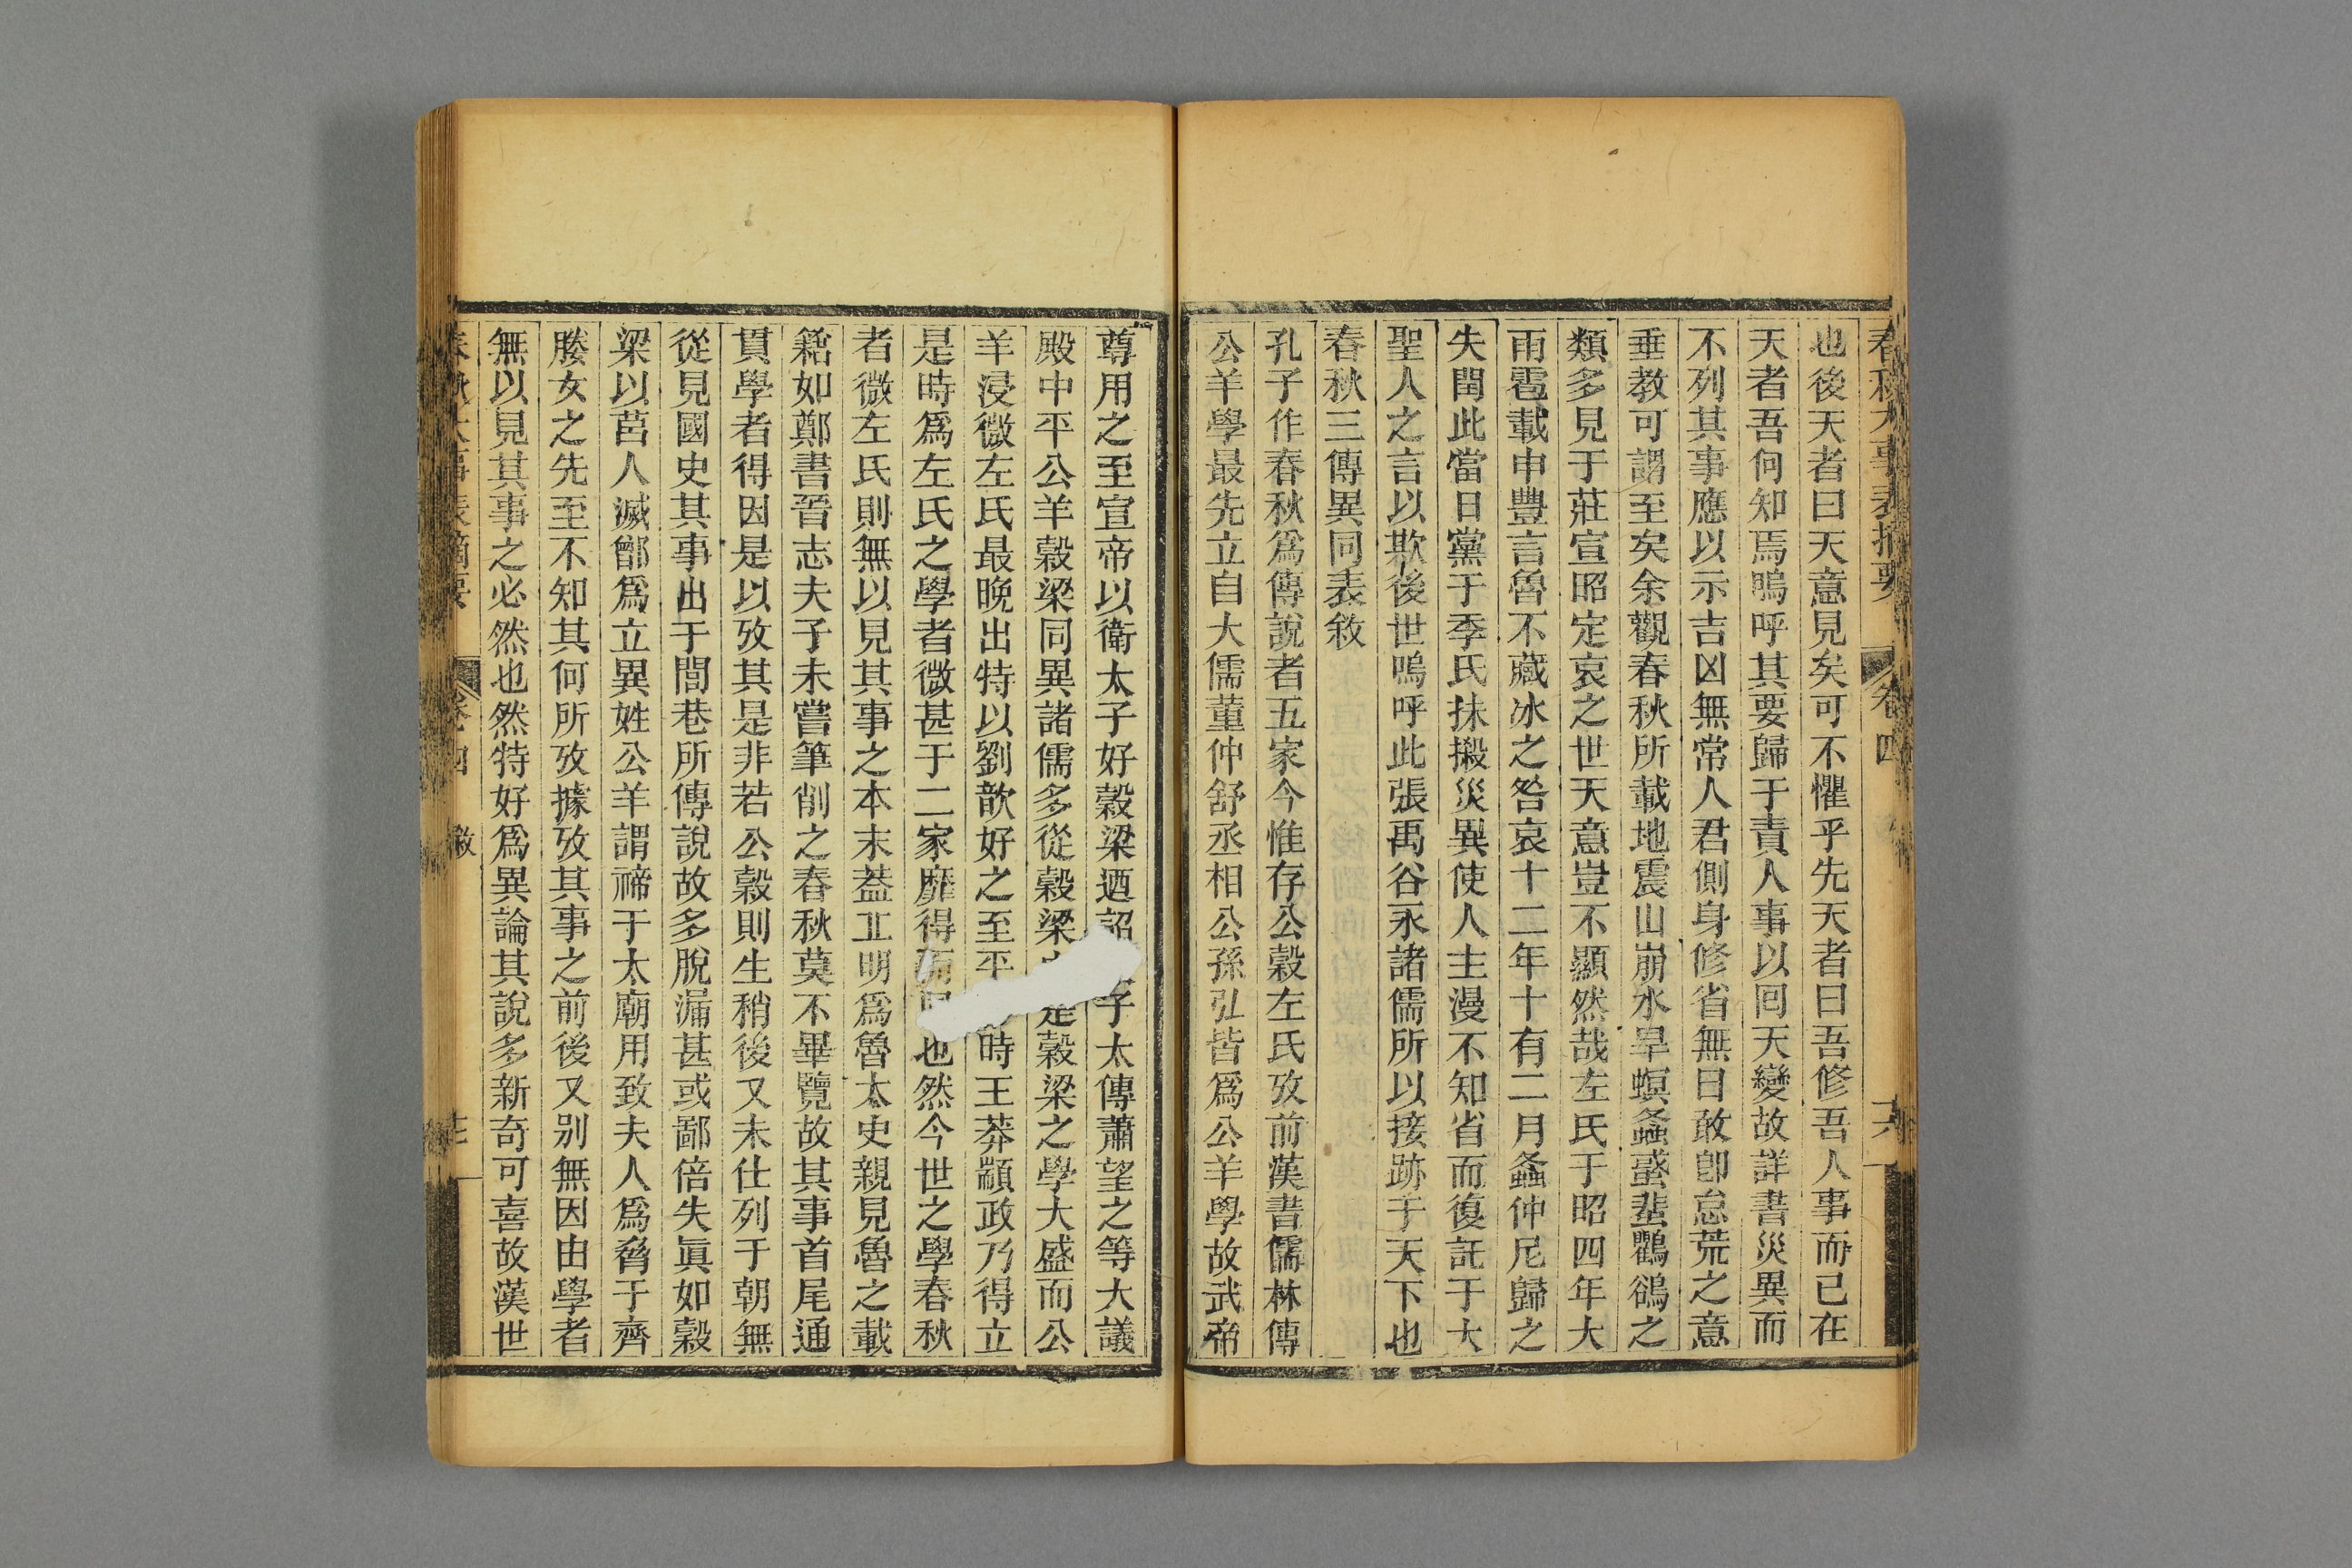 春秋大事表摘要 卷四 六
也後天者曰天意見矣可不懼乎先天者曰吾修吾人事而已在
天者吾何知焉嗚呼其要歸于責人事以囘天變故詳書災異而
不列其事應以示吉凶無常人君側身修省無日敢卽怠荒之意
垂教可謂至矣余觀春秋所載地震山崩水旱螟螽蜚鸜鵒之
類多見于莊宣昭定哀之世天意豈不顯然哉左氏于昭四年大
雨雹載申豐言魯不藏冰之咎哀十二年十有二月螽仲尼歸之
失閏此當日黨于季氏抹搬災異使人主漫不知省而復託于大
聖人之言以欺後世嗚呼此張禹谷永諸儒所以接跡于天下也
春秋三傳異同表敘
孔子作春秋爲傳說者五家今惟存公穀左氏攷前漢書儒林傳
公羊學最先立自大儒董仲舒丞相公孫弘皆爲公羊學故武帝
尊用之至宣帝以衛太子好穀梁迺詔子太傳蕭望之等大議
殿中平公羊穀梁同異諸儒多從穀梁是穀梁之學大盛而公
羊浸微左氏最晚出特以劉歆好之至平時王莽顓政乃得立
是時爲左氏之學者微甚于二家靡得而也然今世之學春秋
者微左氏則無以見其事之本末葢丘明爲魯太史親見魯之載
籍如鄭書晉志夫子未嘗筆削之春秋莫不畢覽故其事首尾通
貫學者得因是以攷其是非若公穀則生稍後又未仕列于朝無
從見國史其事出于閭巷所傳說故多脫漏甚或鄙倍失眞如穀
梁以莒人滅鄫爲立異姓公羊謂禘于太廟用致夫人爲脅于齊
媵女之先至不知其何所攷據攷其事之前後又別無因由學者
無以見其事之必然也然特好爲異論其說多新奇可喜故漢世
春秋大事表摘要 卷四 敘